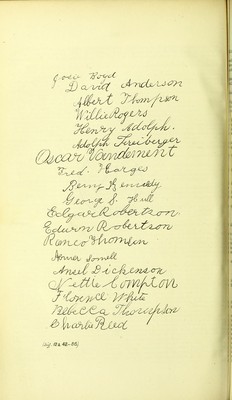 Boyd
David Anderson
Albert Thompson
Willie Rogers
Henry Adolph.
Adolph Freiberger
Oscar Vandement
Fred. Harges
Benny Kennedy
George S. Hull
Edgar Robertson
Edwin Robertson
Romeo Thomlin
Homer
Ansel Dickenson
Nettie Compton
Florence White
Rebecca Thompson
Charles Reed